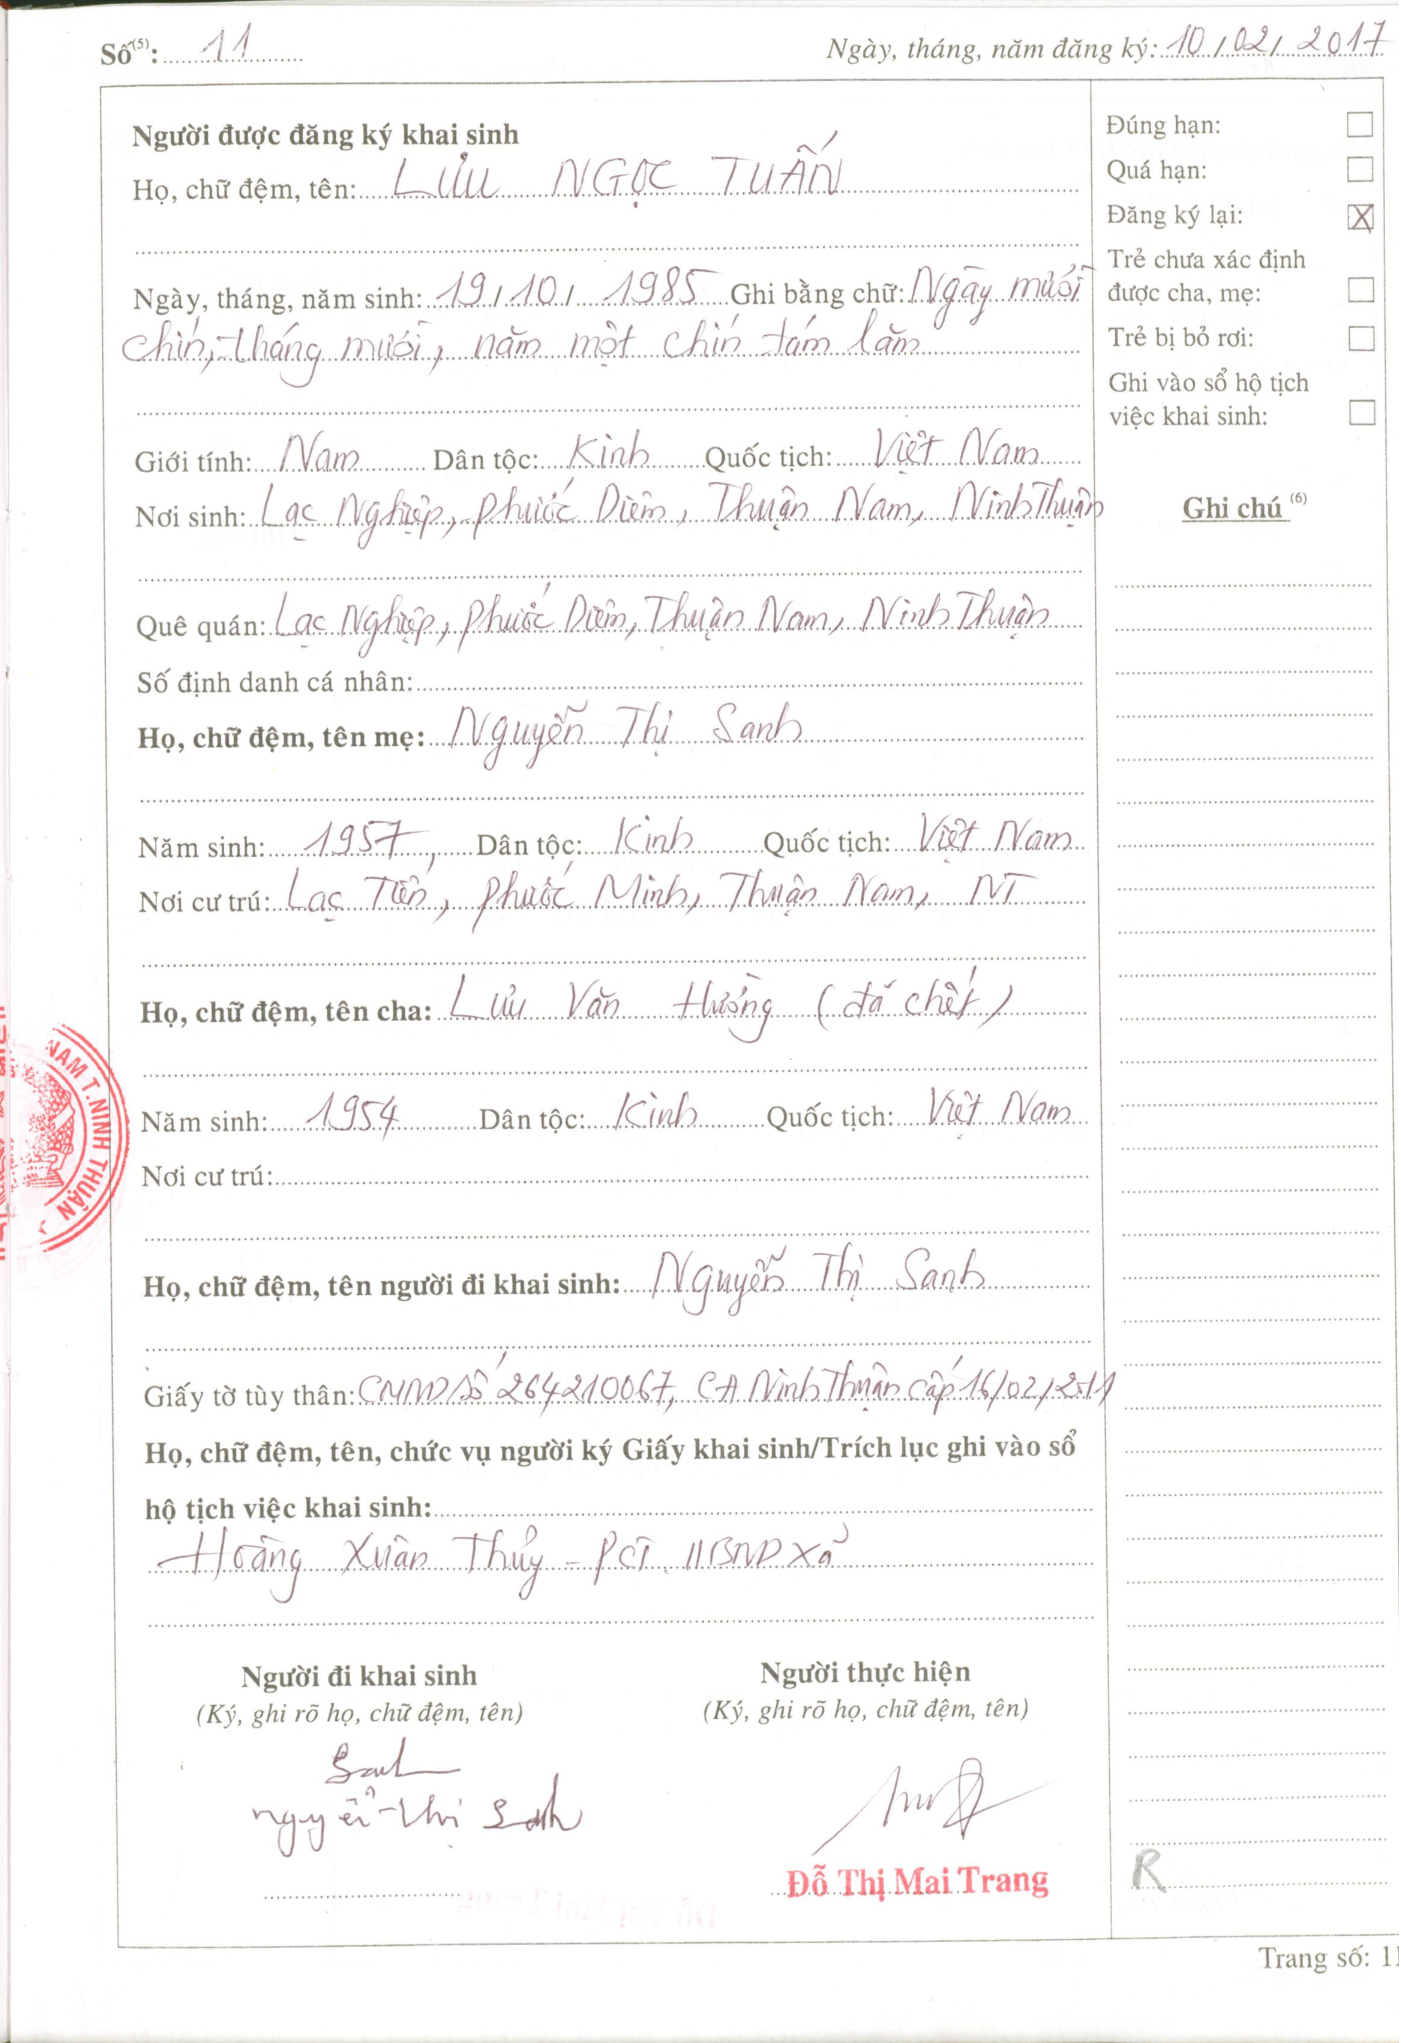 Số(5): 11 Ngày, tháng, năm đăng ký: 10/02/2017
Người được đăng ký khai sinh
Họ, chữ đệm, tên: LƯU NGỌC TUẤN
Ngày, tháng, năm sinh: 19/10/1985 Ghi bằng chữ: Ngày mười
chín, tháng mười, năm một chín tám lăm
Giới tính: Nam Dân tộc: Kinh Quốc tịch: Việt Nam
Nơi sinh: Lạc Nghiệp, Phước Diêm, Thuận Nam, Ninh Thuận
Quê quán: Lạc Nghiệp, Phước Diêm, Thuận Nam, Ninh Thuận
Số định danh cá nhân:
Họ, chữ đệm, tên mẹ: Nguyễn Thị Sanh
Năm sinh: 1957, Dân tộc: Kinh Quốc tịch: Việt Nam
Nơi cư trú: Lạc Tiến, Phước Minh, Thuận Nam, NT
Họ, chữ đệm, tên cha: Lưu Văn Hường (đã chết)
Năm sinh: 1954 Dân tộc: Kinh Quốc tịch: Việt Nam
Nơi cư trú:
Họ, chữ đệm, tên người đi khai sinh: Nguyễn Thị Sanh
Giấy tờ tùy thân: CMND số 264210067, CA Ninh Thuận cấp 16/02/2011
Họ, chữ đệm, tên, chức vụ người ký Giấy khai sinh/Trích lục ghi vào sổ
hộ tịch việc khai sinh:
Hoàng Xuân Thủy - PCT. UBND xã
Người đi khai sinh
(Ký, ghi rõ họ, chữ đệm, tên)
Sanh
Nguyễn Thị Sanh
Người thực hiện
(Ký, ghi rõ họ, chữ đệm, tên)
Đỗ Thị Mai Trang
Đúng hạn:
Quá hạn:
Đăng ký lại: X
Trẻ chưa xác định
được cha, mẹ:
Trẻ bị bỏ rơi:
Ghi vào sổ hộ tịch
việc khai sinh:
Ghi chú (6)
R
NAM T.NINH THUẬN
Trang số: 11